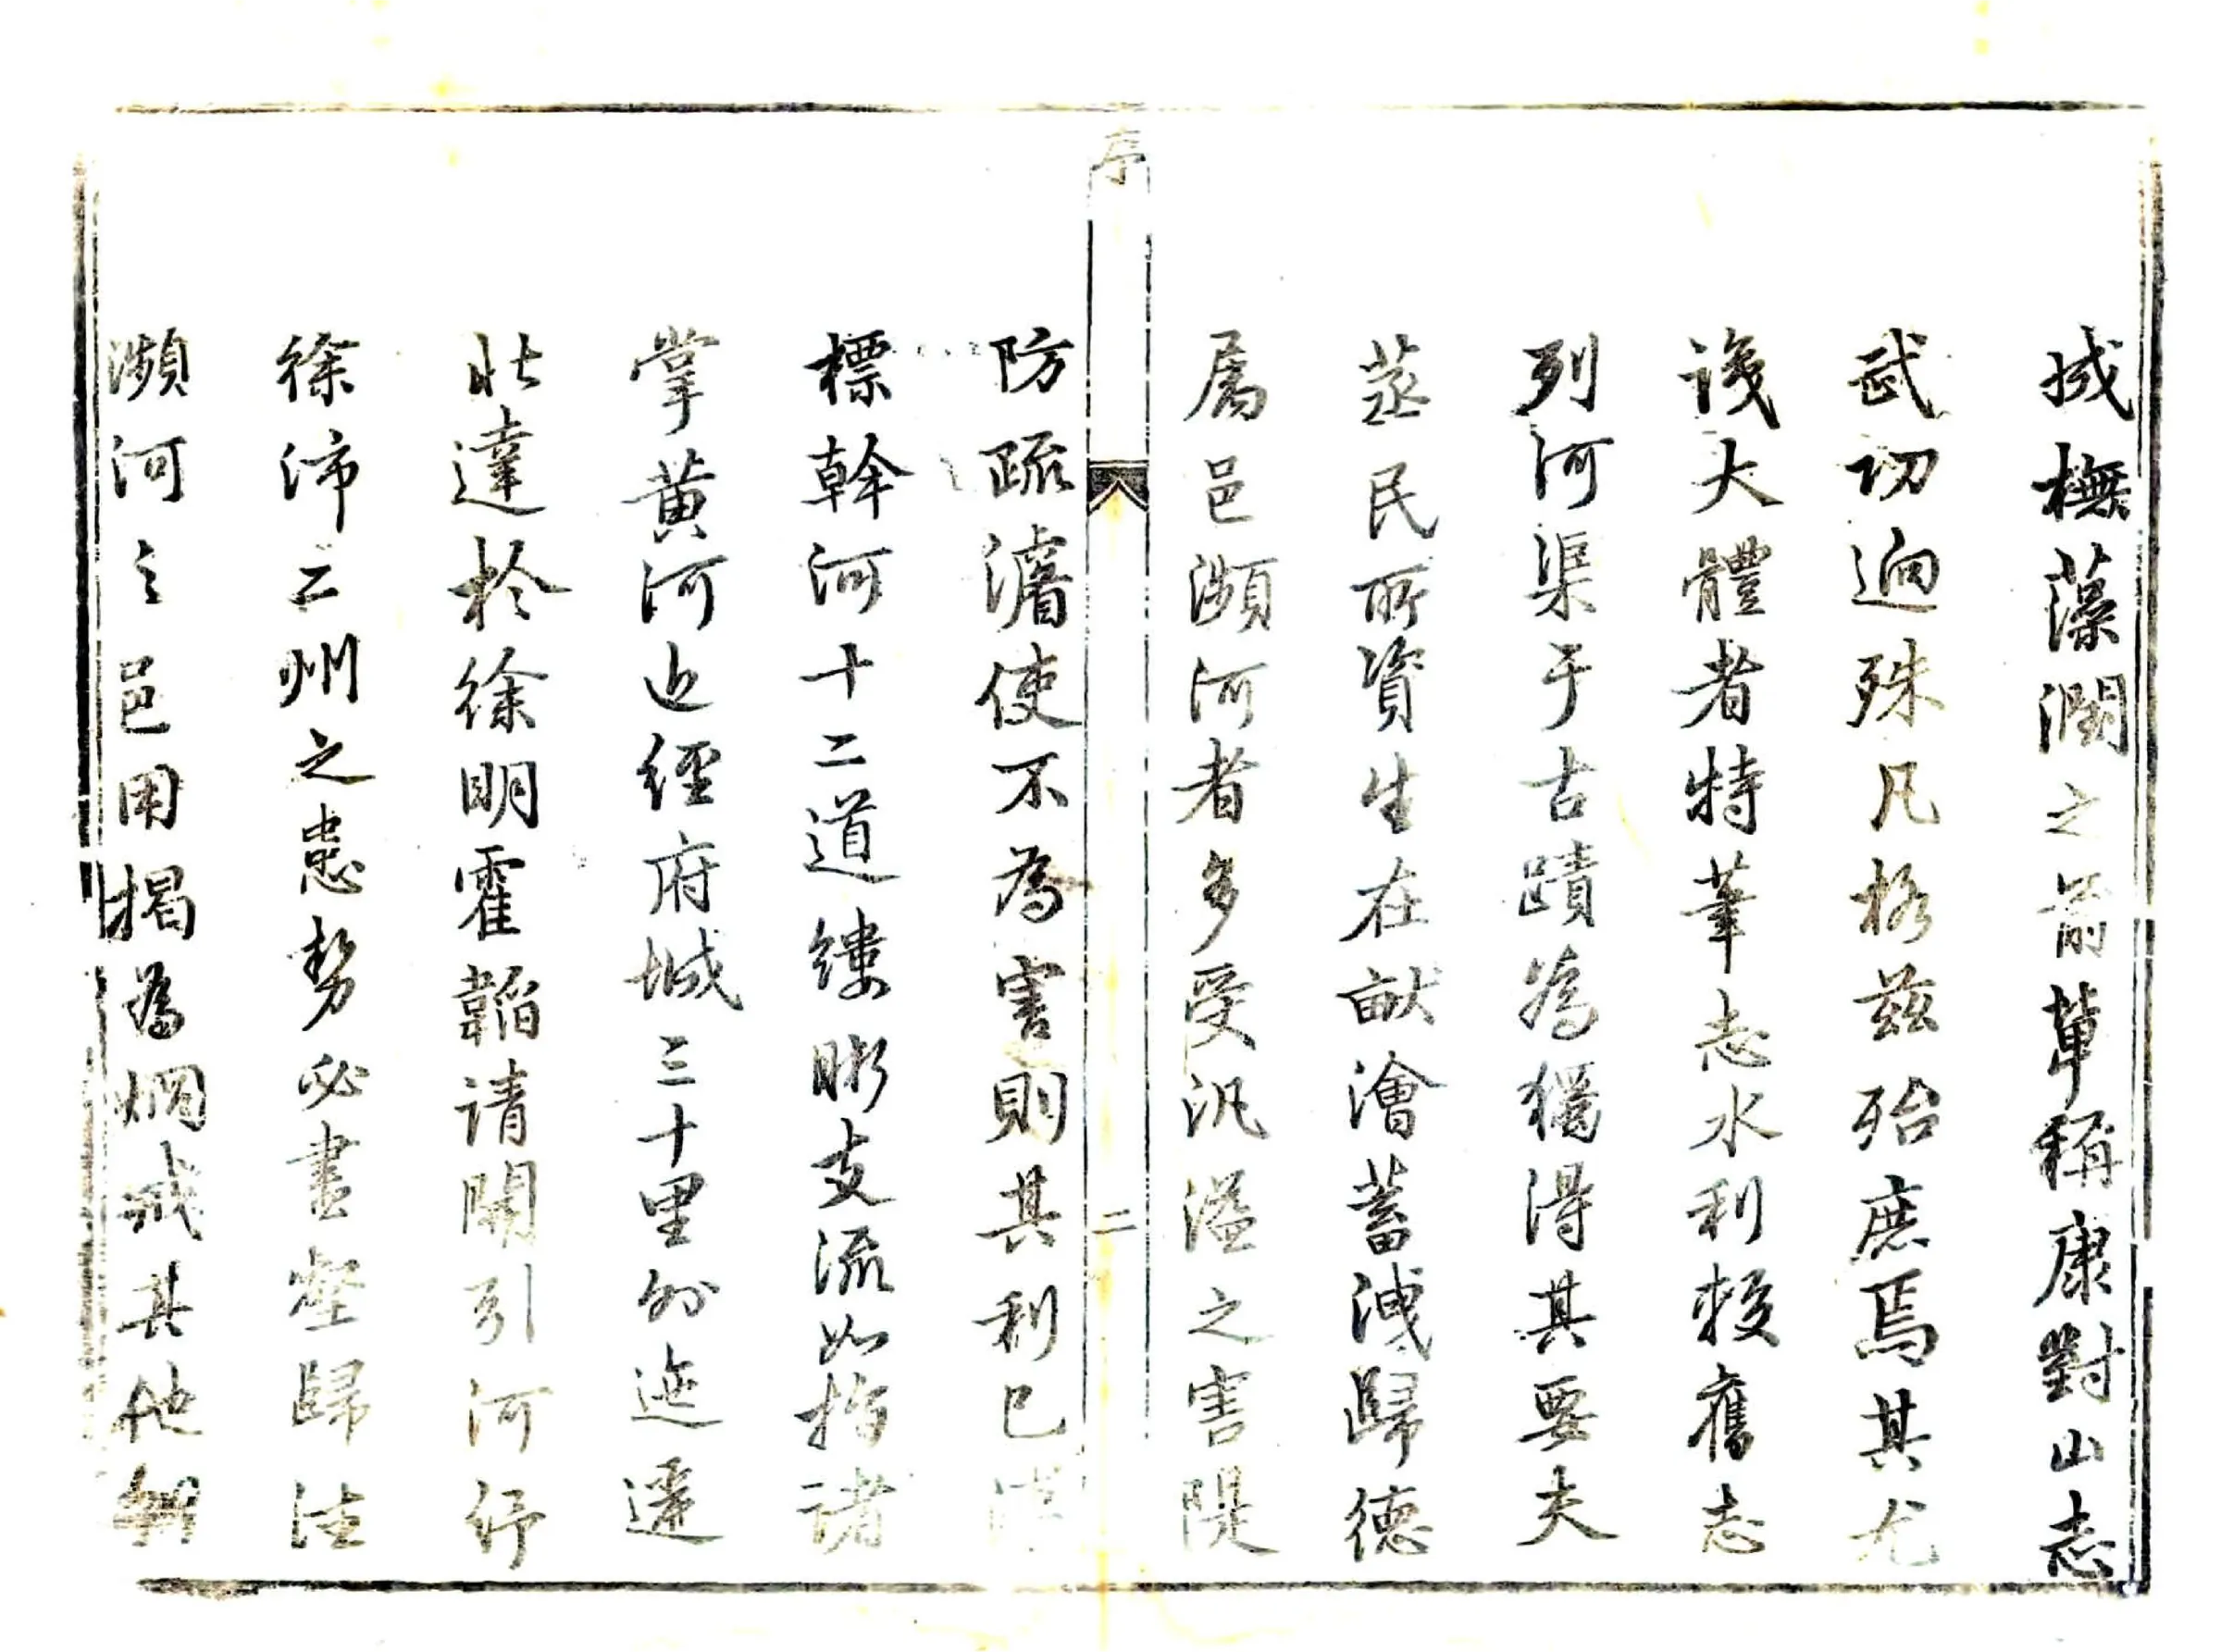 城橅藻潤之前輩稱康對山志
武功迥殊凡格茲殆庶焉其尤
識大體者特筆志水利較舊志
列河渠于古蹟為獨得其要夫
蒸民所資生在畎澮蓄洩歸德
屬邑瀕河者多受汎溢之害隄
序
二
防疏瀦使不為害則其利已
標幹河十二道縷晰支流如指諸
掌黃河近經府城三十里外迤邐
北達於徐明霍韜請開引河紓
徐沛二州之患勢必盡壑歸注
瀕河之邑用揭為炯戒其他